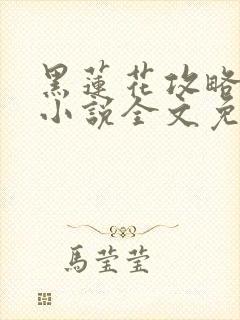 黑蓮花攻略
小說全文免
馬瑩瑩